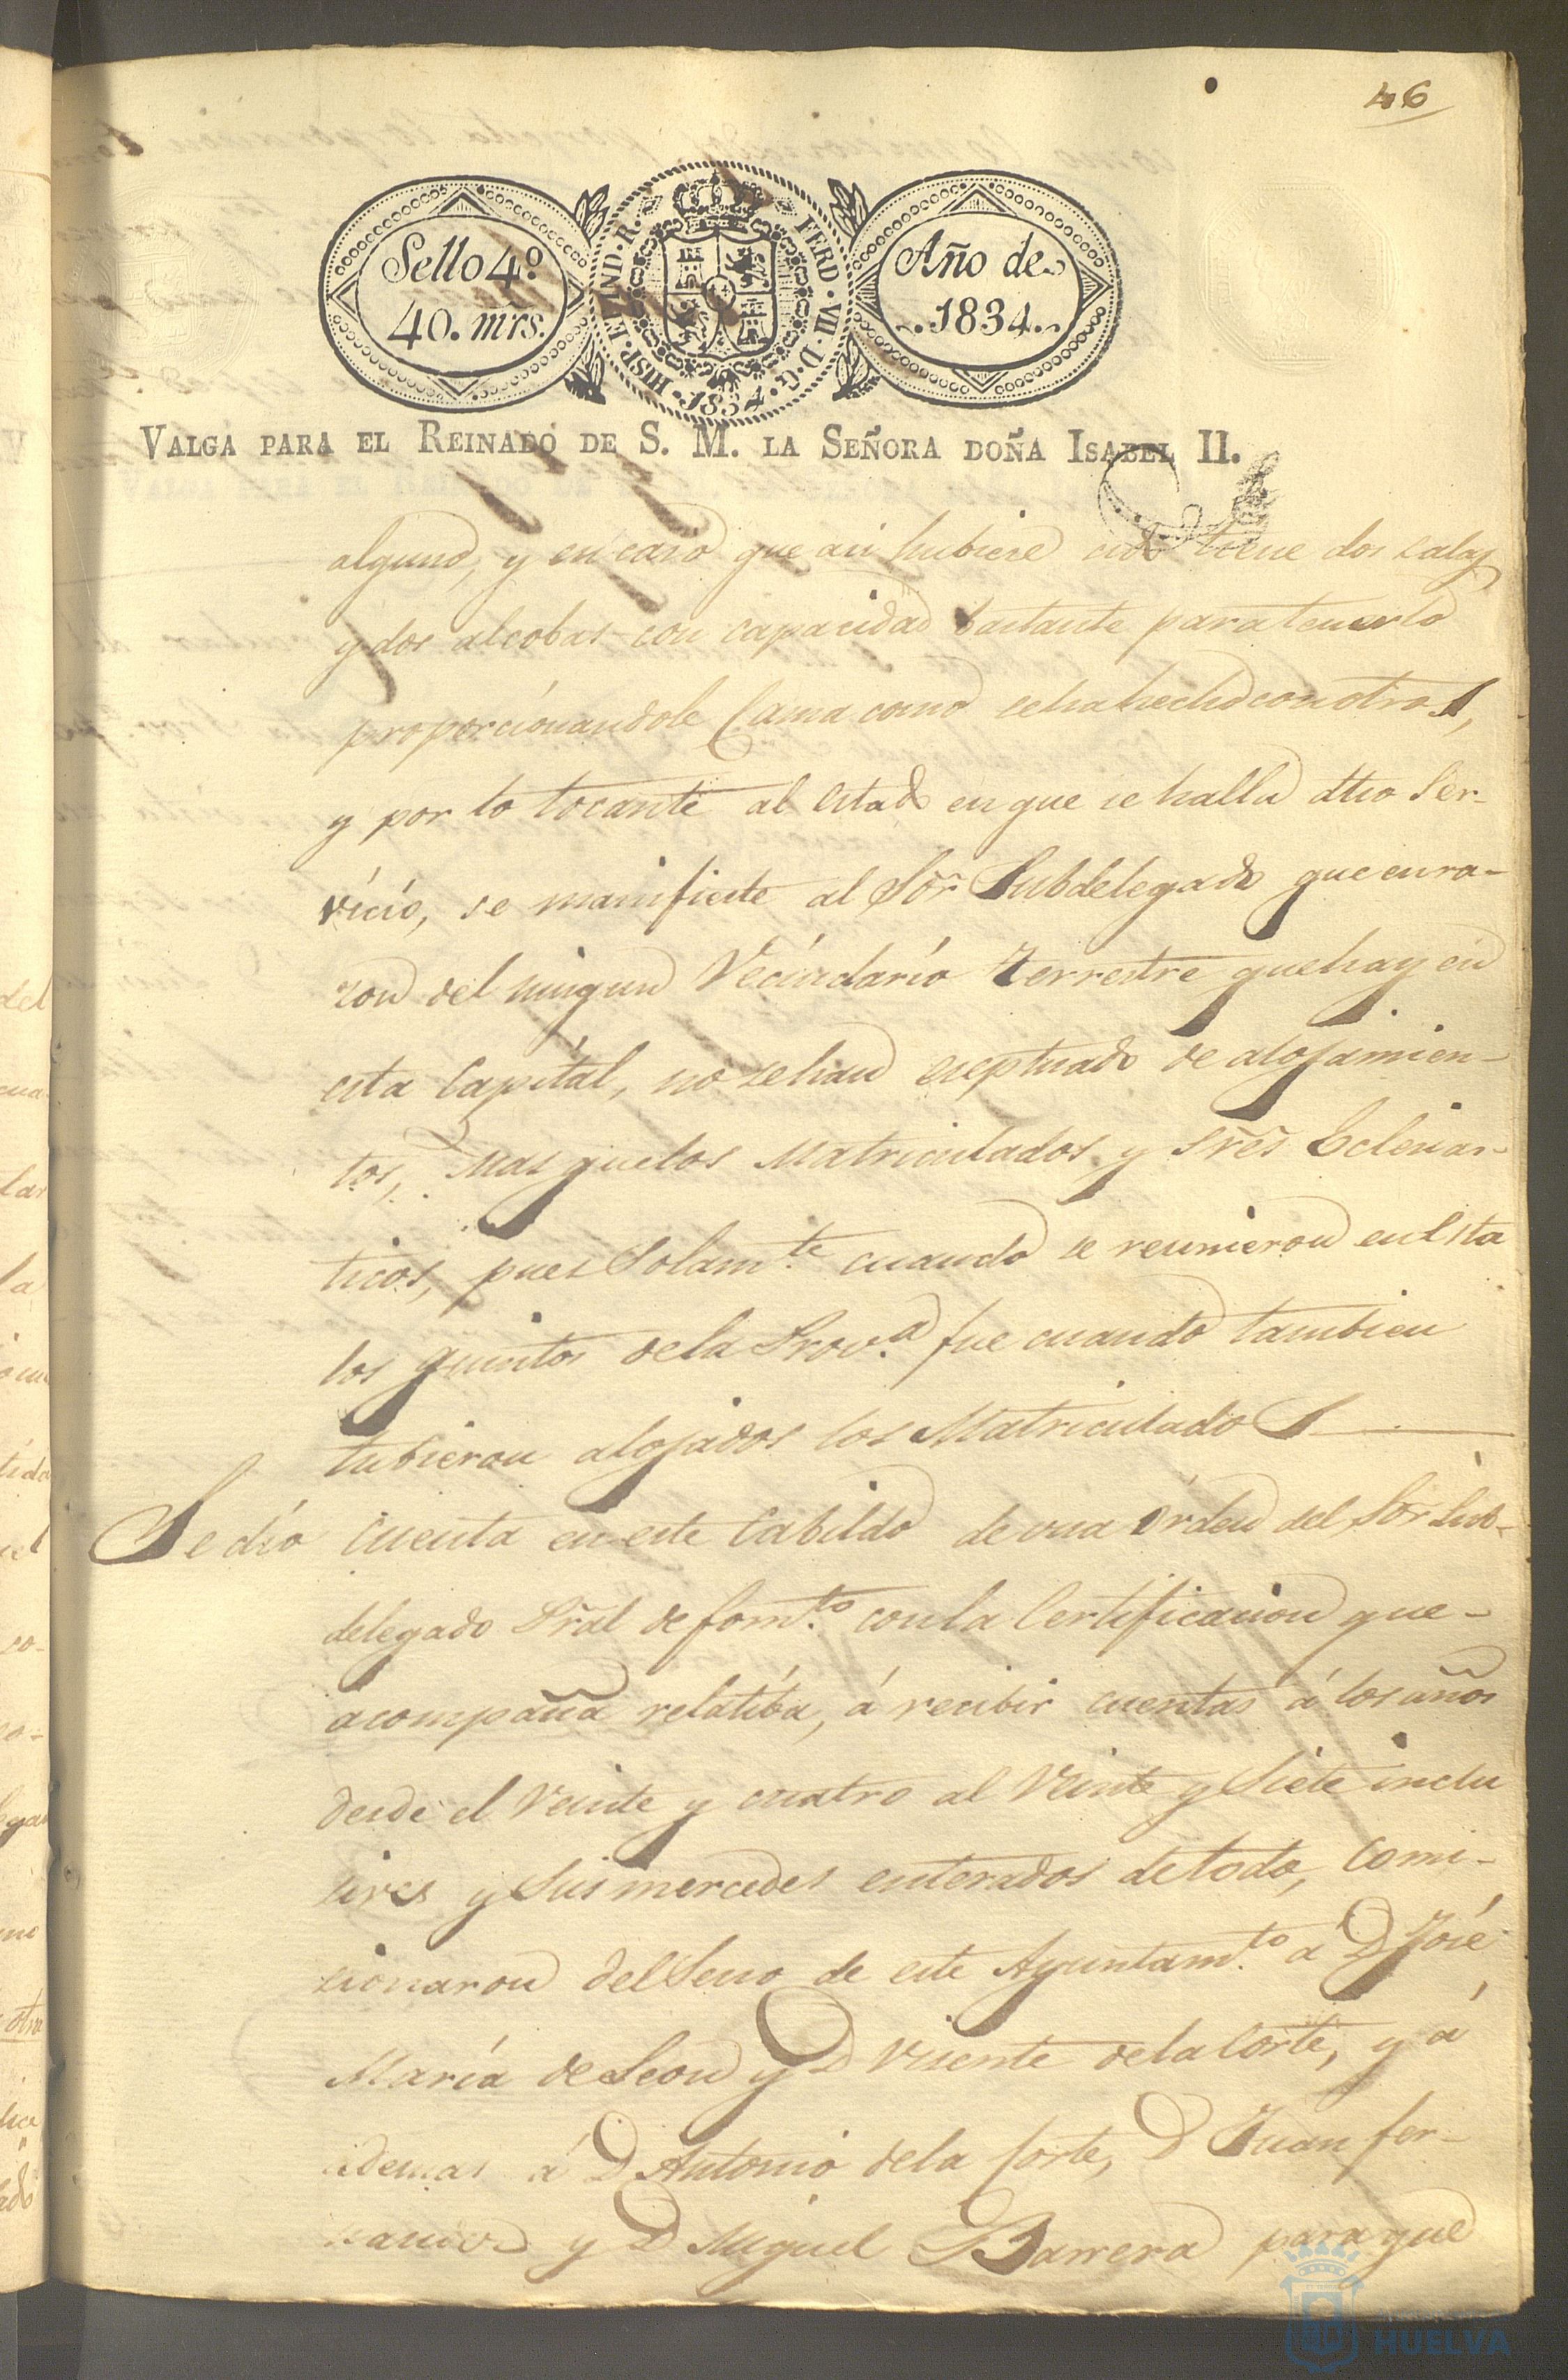 46
Sello 4º
40. mrs.
HISP. ET IND. R.
FERD. VII. D. G.
1834
Año de
1834.
VALGA PARA EL REINADO DE S. M. LA SEÑORA DOÑA ISABEL II.
alguno, y en caso que asi hubiere sido tiene dos salas
y dos alcobas con capacidad bastante para tenerlo
proporcionandole Cama como se ha hecho con otros,
y por lo tocante al Estado en que se halla dho Ser-
vicio, se manifieste al Sor Subdelegado que en ra-
zon del ningun Vecindario terrestre que hay en
esta Capital, no se han eseptuado de alojamien-
tos, mas que los Matriculados y Sres Eclesias-
ticos, pues Solamte cuando se reunieron en Esta
los quintos de la Prova fue cuando tambien
tubieron alojados los Matriculados
Se dio cuenta en este Cabildo de una órden del Sor Sub-
delegado Pral de fomto con la Certificacion que-
acompaña relatiba, á recibir cuentas á los años
desde el Veinte y cuatro al Veinte y Siete inclu
sives y Sus mercedes enterados de todo, comi-
sionaron del Seno de este Ayuntamto á D José
María de Leon y D Visente de la Corte, y á
demas á D Antonio de la Corte, D Juan fer-
nandes y D Miguel Barrera para que
HUELVA